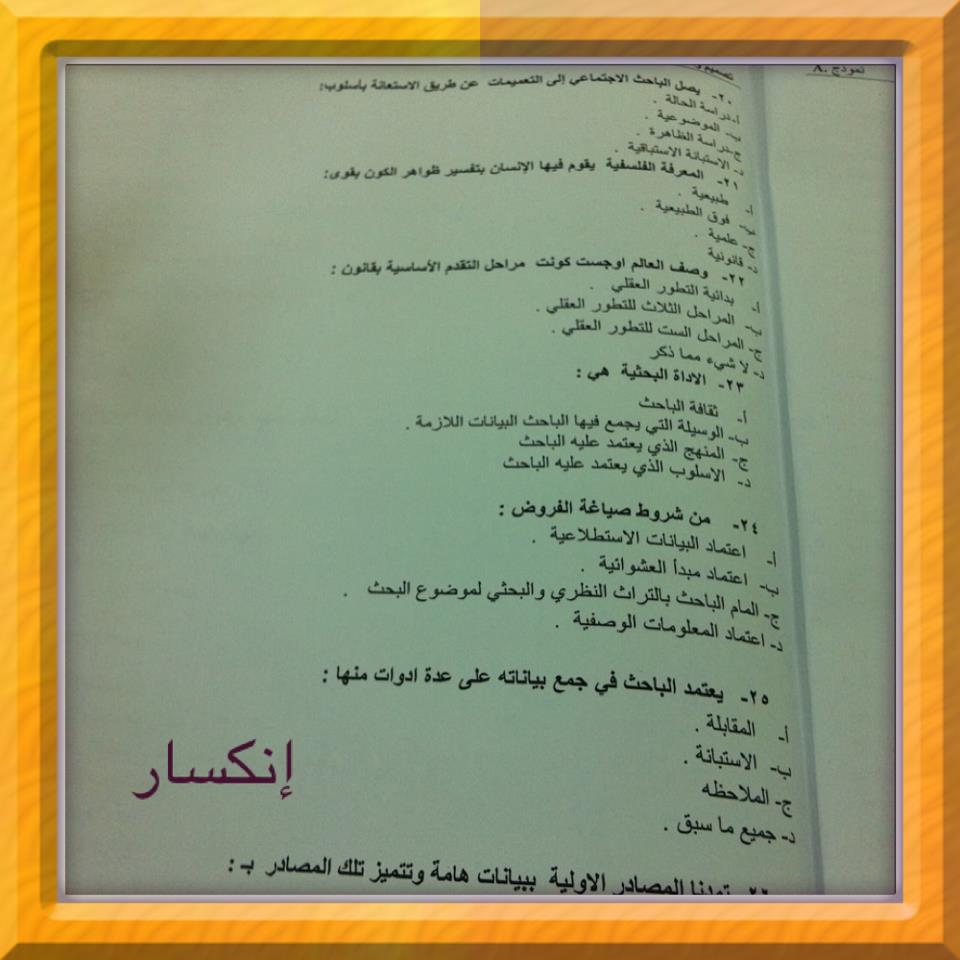 نموذج A.
٢٠- يصل الباحث الاجتماعي إلى التعميمات عن طريق الاستعانة بأسلوب:
أ- دراسة الحالة .
ب- الموضوعية .
ج- دراسة الظاهرة .
د- الاستبانة الاستباقية .
٢١- المعرفة الفلسفية يقوم فيها الإنسان بتفسير ظواهر الكون بقوى:
أ- طبيعية .
ب- فوق الطبيعية .
ج- علمية .
د- قانونية
٢٢- وصف العالم اوجست كونت مراحل التقدم الأساسية بقانون :
أ- بدائية التطور العقلي .
ب- المراحل الثلاث للتطور العقلي .
ج- المراحل الست للتطور العقلي .
د- لا شيء مما ذكر
٢٣- الاداة البحثية هي :
أ- ثقافة الباحث
ب- الوسيلة التي يجمع فيها الباحث البيانات اللازمة .
ج- المنهج الذي يعتمد عليه الباحث
د- الاسلوب الذي يعتمد عليه الباحث
٢٤- من شروط صياغة الفروض :
أ- اعتماد البيانات الاستطلاعية .
ب- اعتماد مبدأ العشوائية .
ج- المام الباحث بالتراث النظري والبحثي لموضوع البحث .
د- اعتماد المعلومات الوصفية .
٢٥- يعتمد الباحث في جمع بياناته على عدة ادوات منها :
أ- المقابلة .
ب- الاستبانة .
ج- الملاحظه
د- جميع ما سبق .
٢٦- تمدنا المصادر الاولية ببيانات هامة وتتميز تلك المصادر بـ :
إنكسار